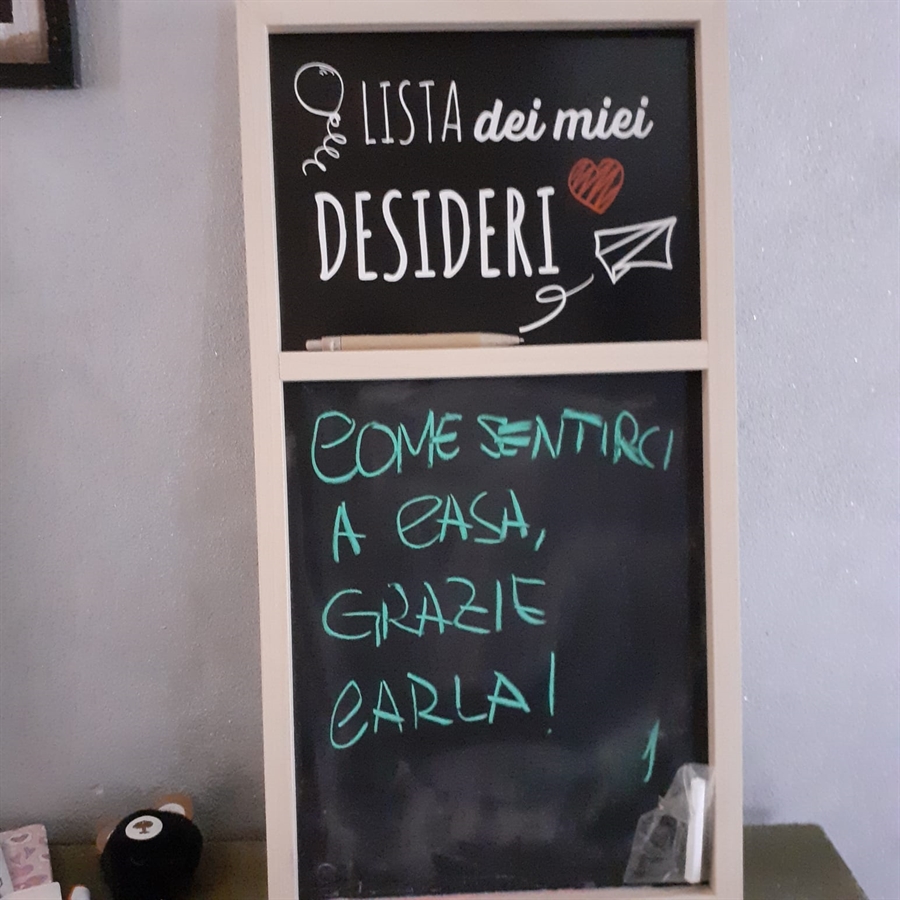 LISTA dei miei
DESIDERI
COME SENTIRCI
A CASA,
GRAZIE
CARLA!